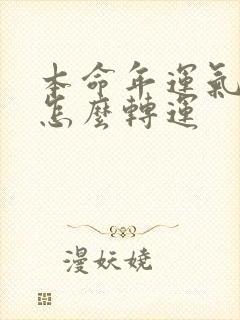 本命年運氣
怎麼轉運
漫妖嬈